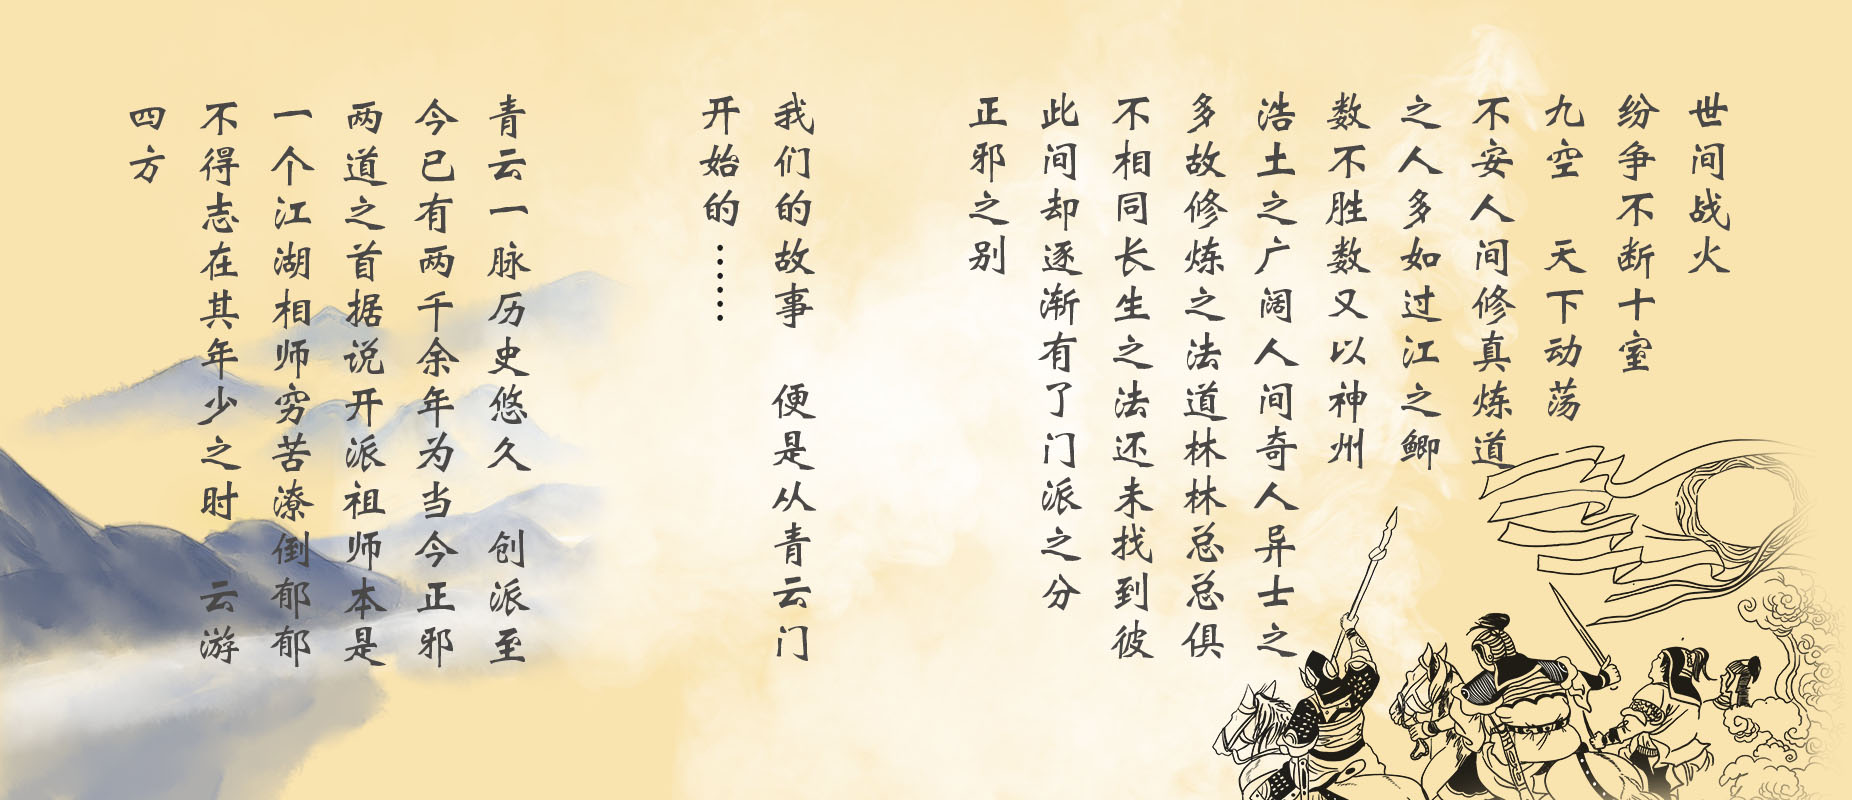 世间战火
纷争不断十室
九空 天下动荡
不安人间修真炼道
之人多如过江之鲫
数不胜数又以神州
浩土之广阔人间奇人异士之
多故修炼之法道林林总总俱
不相同长生之法还未找到彼
此间却逐渐有了门派之分
正邪之别
我们的故事 便是从青云门
开始的……
青云一脉历史悠久 创派至
今已有两千余年为当今正邪
两道之首据说开派祖师本是
一个江湖相师穷苦潦倒郁郁
不得志在其年少之时 云游
四方